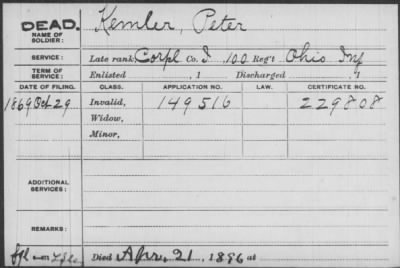 DEAD. Kemler, Peter
NAME OF SOLDIER:
SERVICE: Late rank, Corpl Co. I, 100 Reg't Ohio Inf
TERM OF SERVICE: Enlisted , 1 Discharged , 1
DATE OF FILING. CLASS. APPLICATION NO. LAW. CERTIFICATE NO.
1869 Oct 29 Invalid, 149516 229808
Widow,
Minor,
ADDITIONAL SERVICES:
REMARKS:
Died Apr. 21, 1896 at